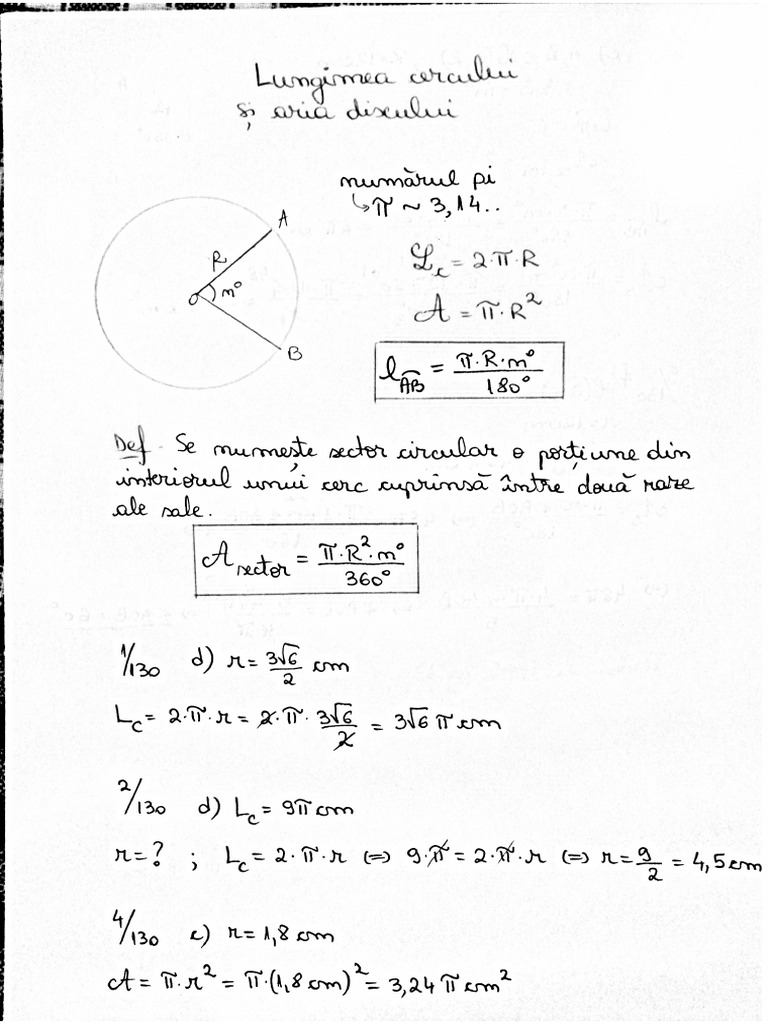 Lungimea cercului
și aria discului
numărul pi
↳ π ~ 3,14..
A
R
O m°
B
ℒc = 2·π·R
𝒜 = π·R²
l_AB̑ = π·R·m° / 180°
Def. Se numește sector circular o porțiune din
interiorul unui cerc cuprinsă între două raze
ale sale.
𝒜 sector = π·R²·m° / 360°
1/130 d) r = 3√6/2 cm
Lc = 2·π·r = 2·π·3√6/2 = 3√6 π cm
2/130 d) Lc = 9π cm
r = ? ; Lc = 2·π·r (=) 9·π = 2·π·r (=) r = 9/2 = 4,5 cm
4/130 c) r = 1,8 cm
𝒜 = π·r² = π·(1,8 cm)² = 3,24 π cm²